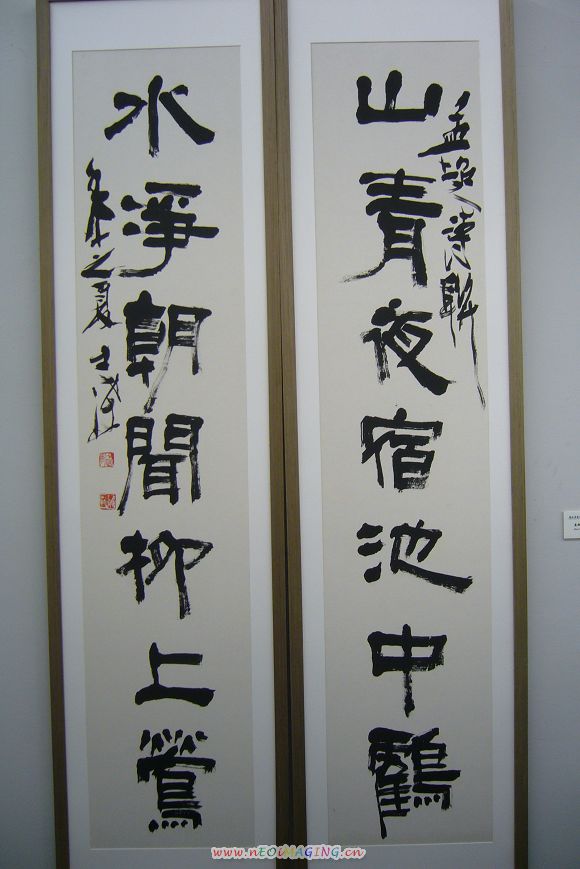 山青夜宿池中鶴
水淨朝聞柳上鶯
之夏
www.nEOiMAGING.cn